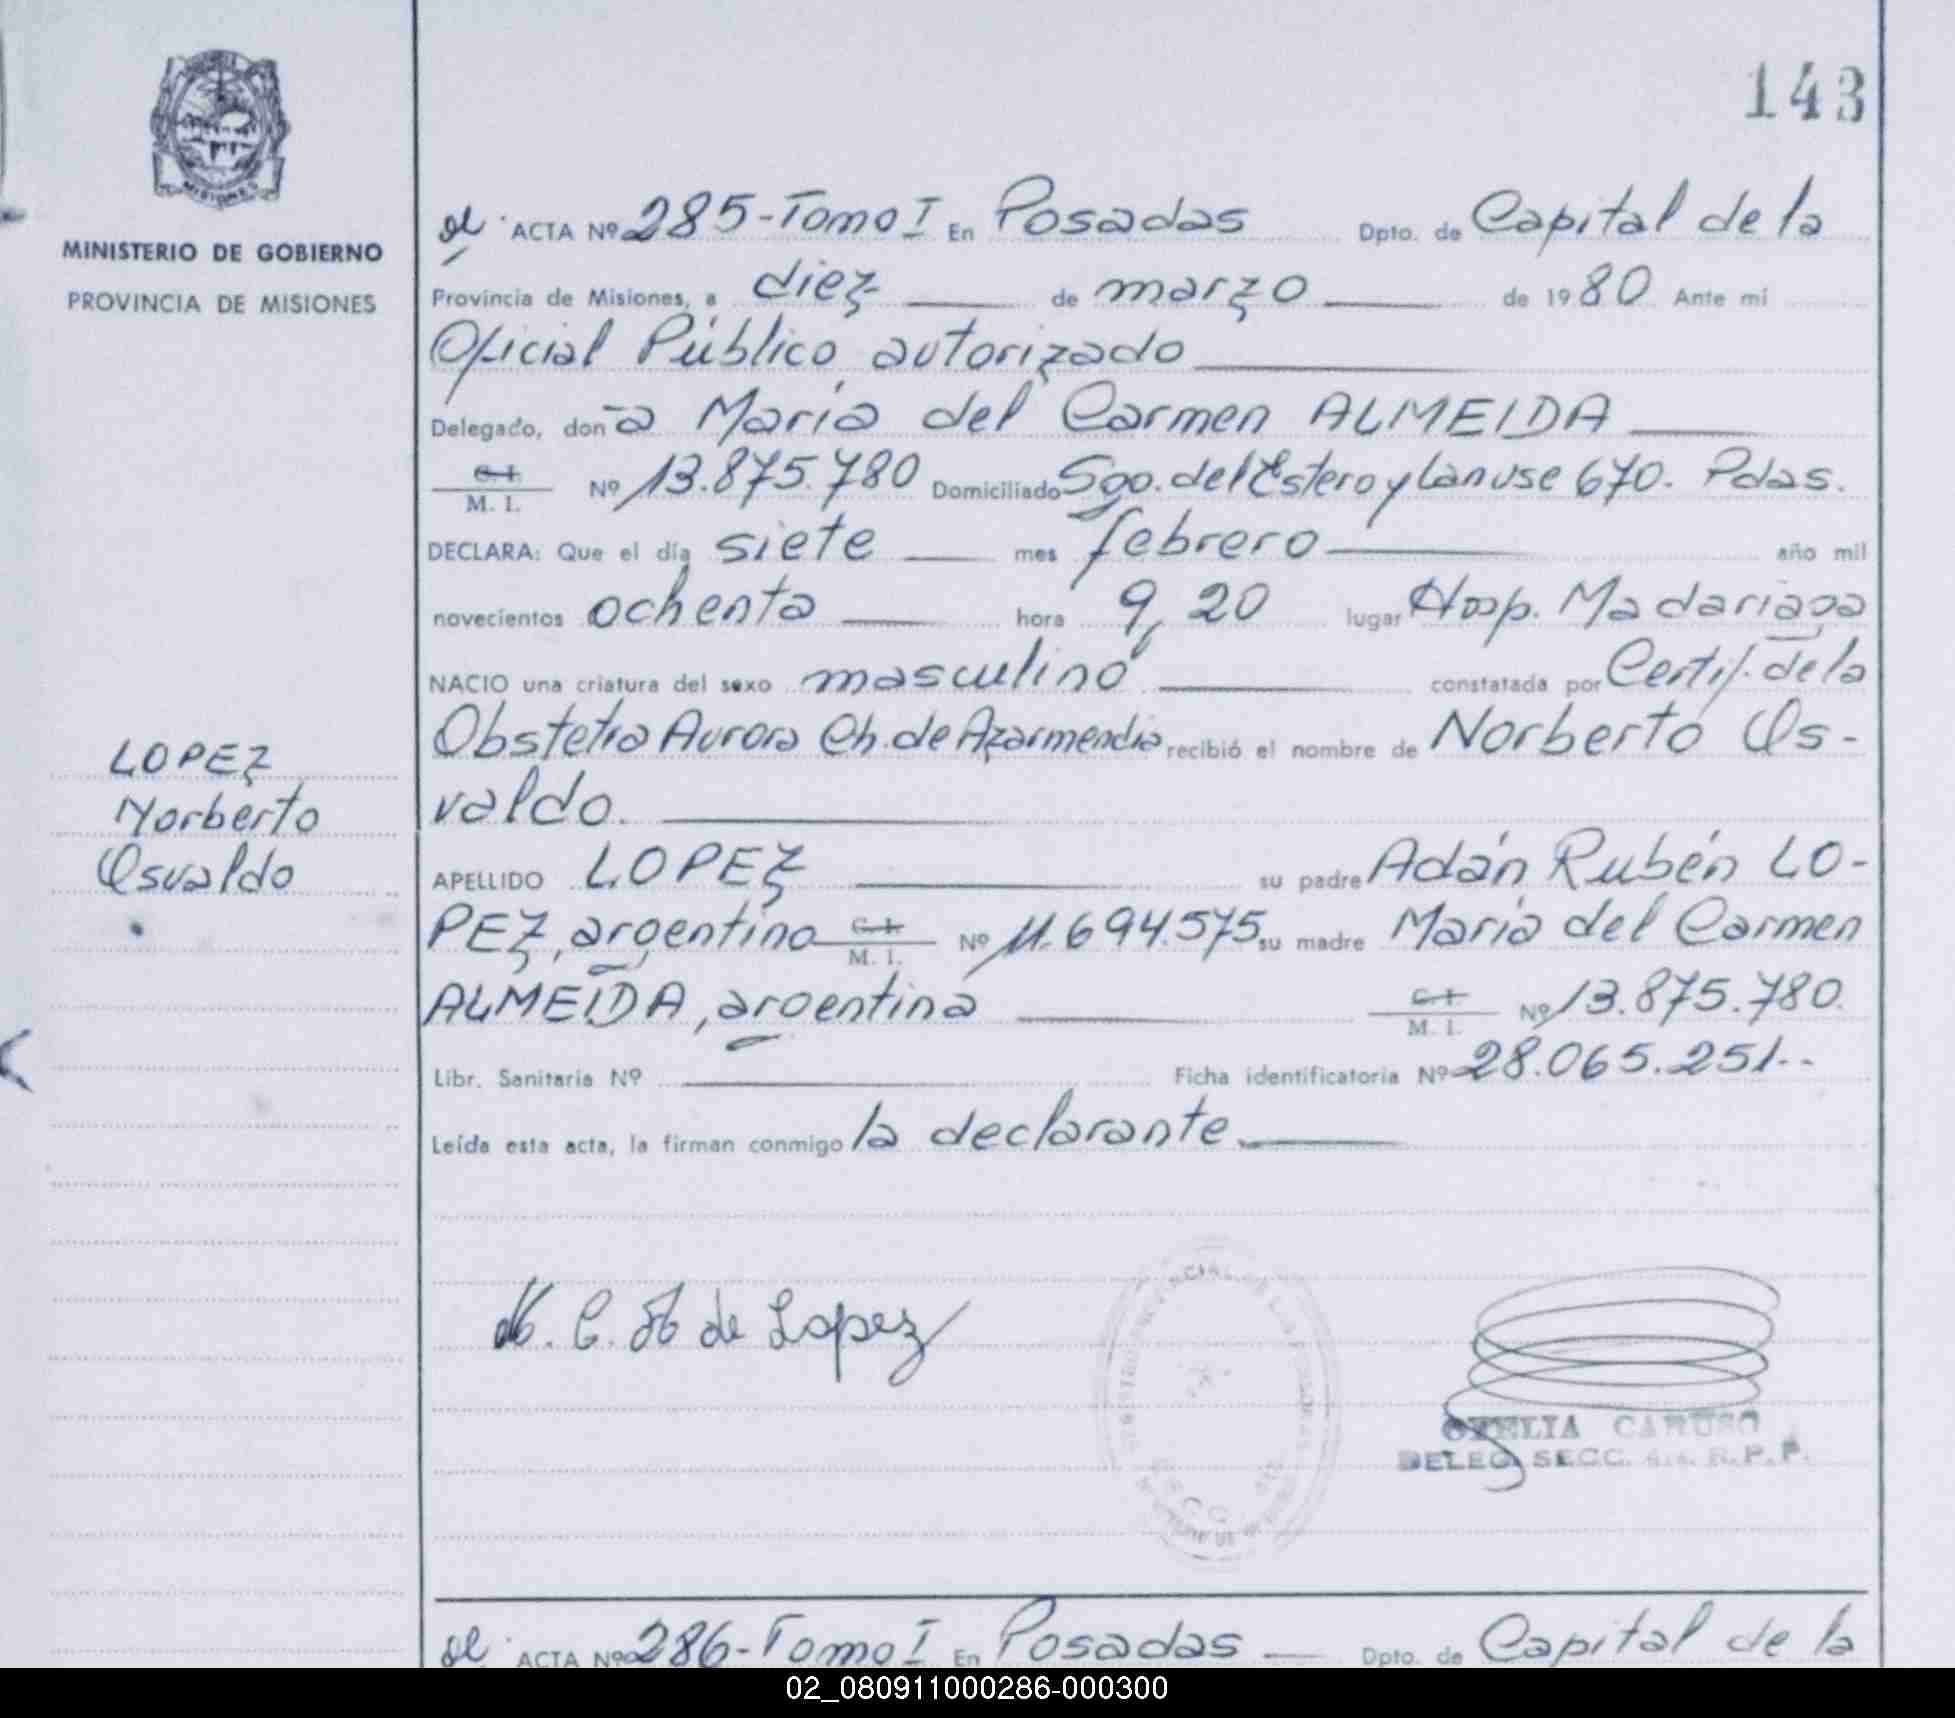 143
MINISTERIO DE GOBIERNO
PROVINCIA DE MISIONES
LOPEZ
Norberto
Osvaldo
ACTA Nº 285-Tomo I En Posadas Dpto. de Capital de la
Provincia de Misiones, a diez de marzo de 1980 Ante mí
Oficial Público autorizado
Delegado, don a María del Carmen ALMEIDA
C.I.
M. I. Nº 13.875.780 Domiciliado Sgo. del Estero y Lanuse 670. Pdas.
DECLARA: Que el día siete mes febrero año mil
novecientos ochenta hora 9,20 lugar Hosp. Madariaga
NACIO una criatura del sexo masculino constatada por Certif. de la
Obstetra Aurora Ch. de Azarmendia recibió el nombre de Norberto Os-
valdo.
APELLIDO LOPEZ su padre Adán Rubén LO-
PEZ, argentino C.I. M. I. Nº 11.694.575 su madre María del Carmen
ALMEIDA, argentina C.I. M. I. Nº 13.875.780.
Libr. Sanitaria Nº Ficha identificatoria Nº 28.065.251--
Leída esta acta, la firman conmigo la declarante.
de Lopez
OFELIA CARUSO
DELEG. SECC. 4ta. R.P.P.
ACTA Nº 286-Tomo I En Posadas Dpto. de Capital de la
02_080911000286-000300